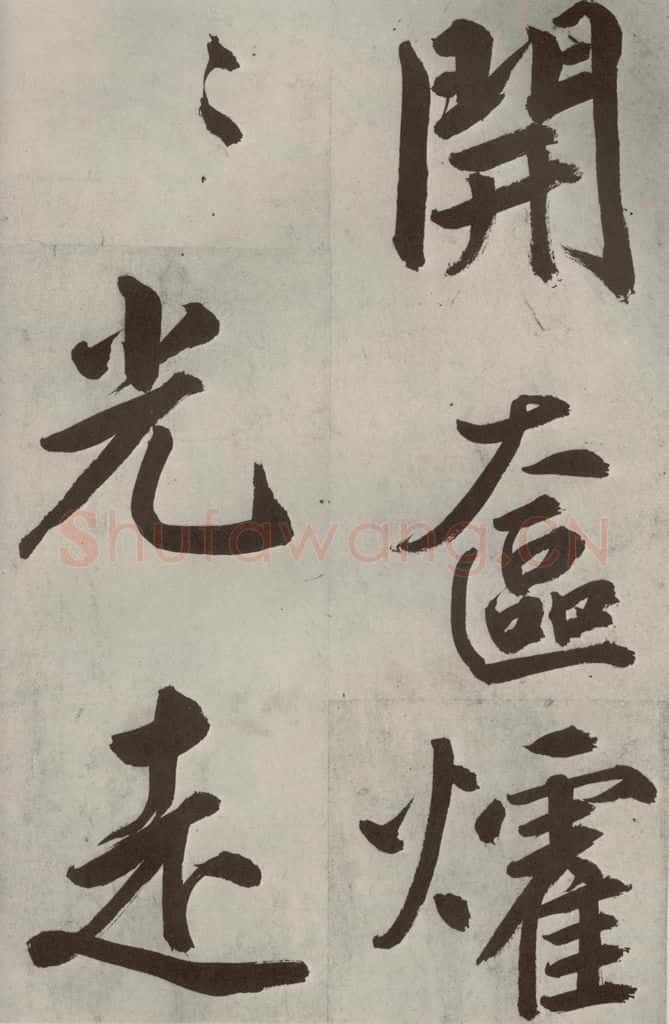 開奩㸌
〻光走
Shufawang.CN